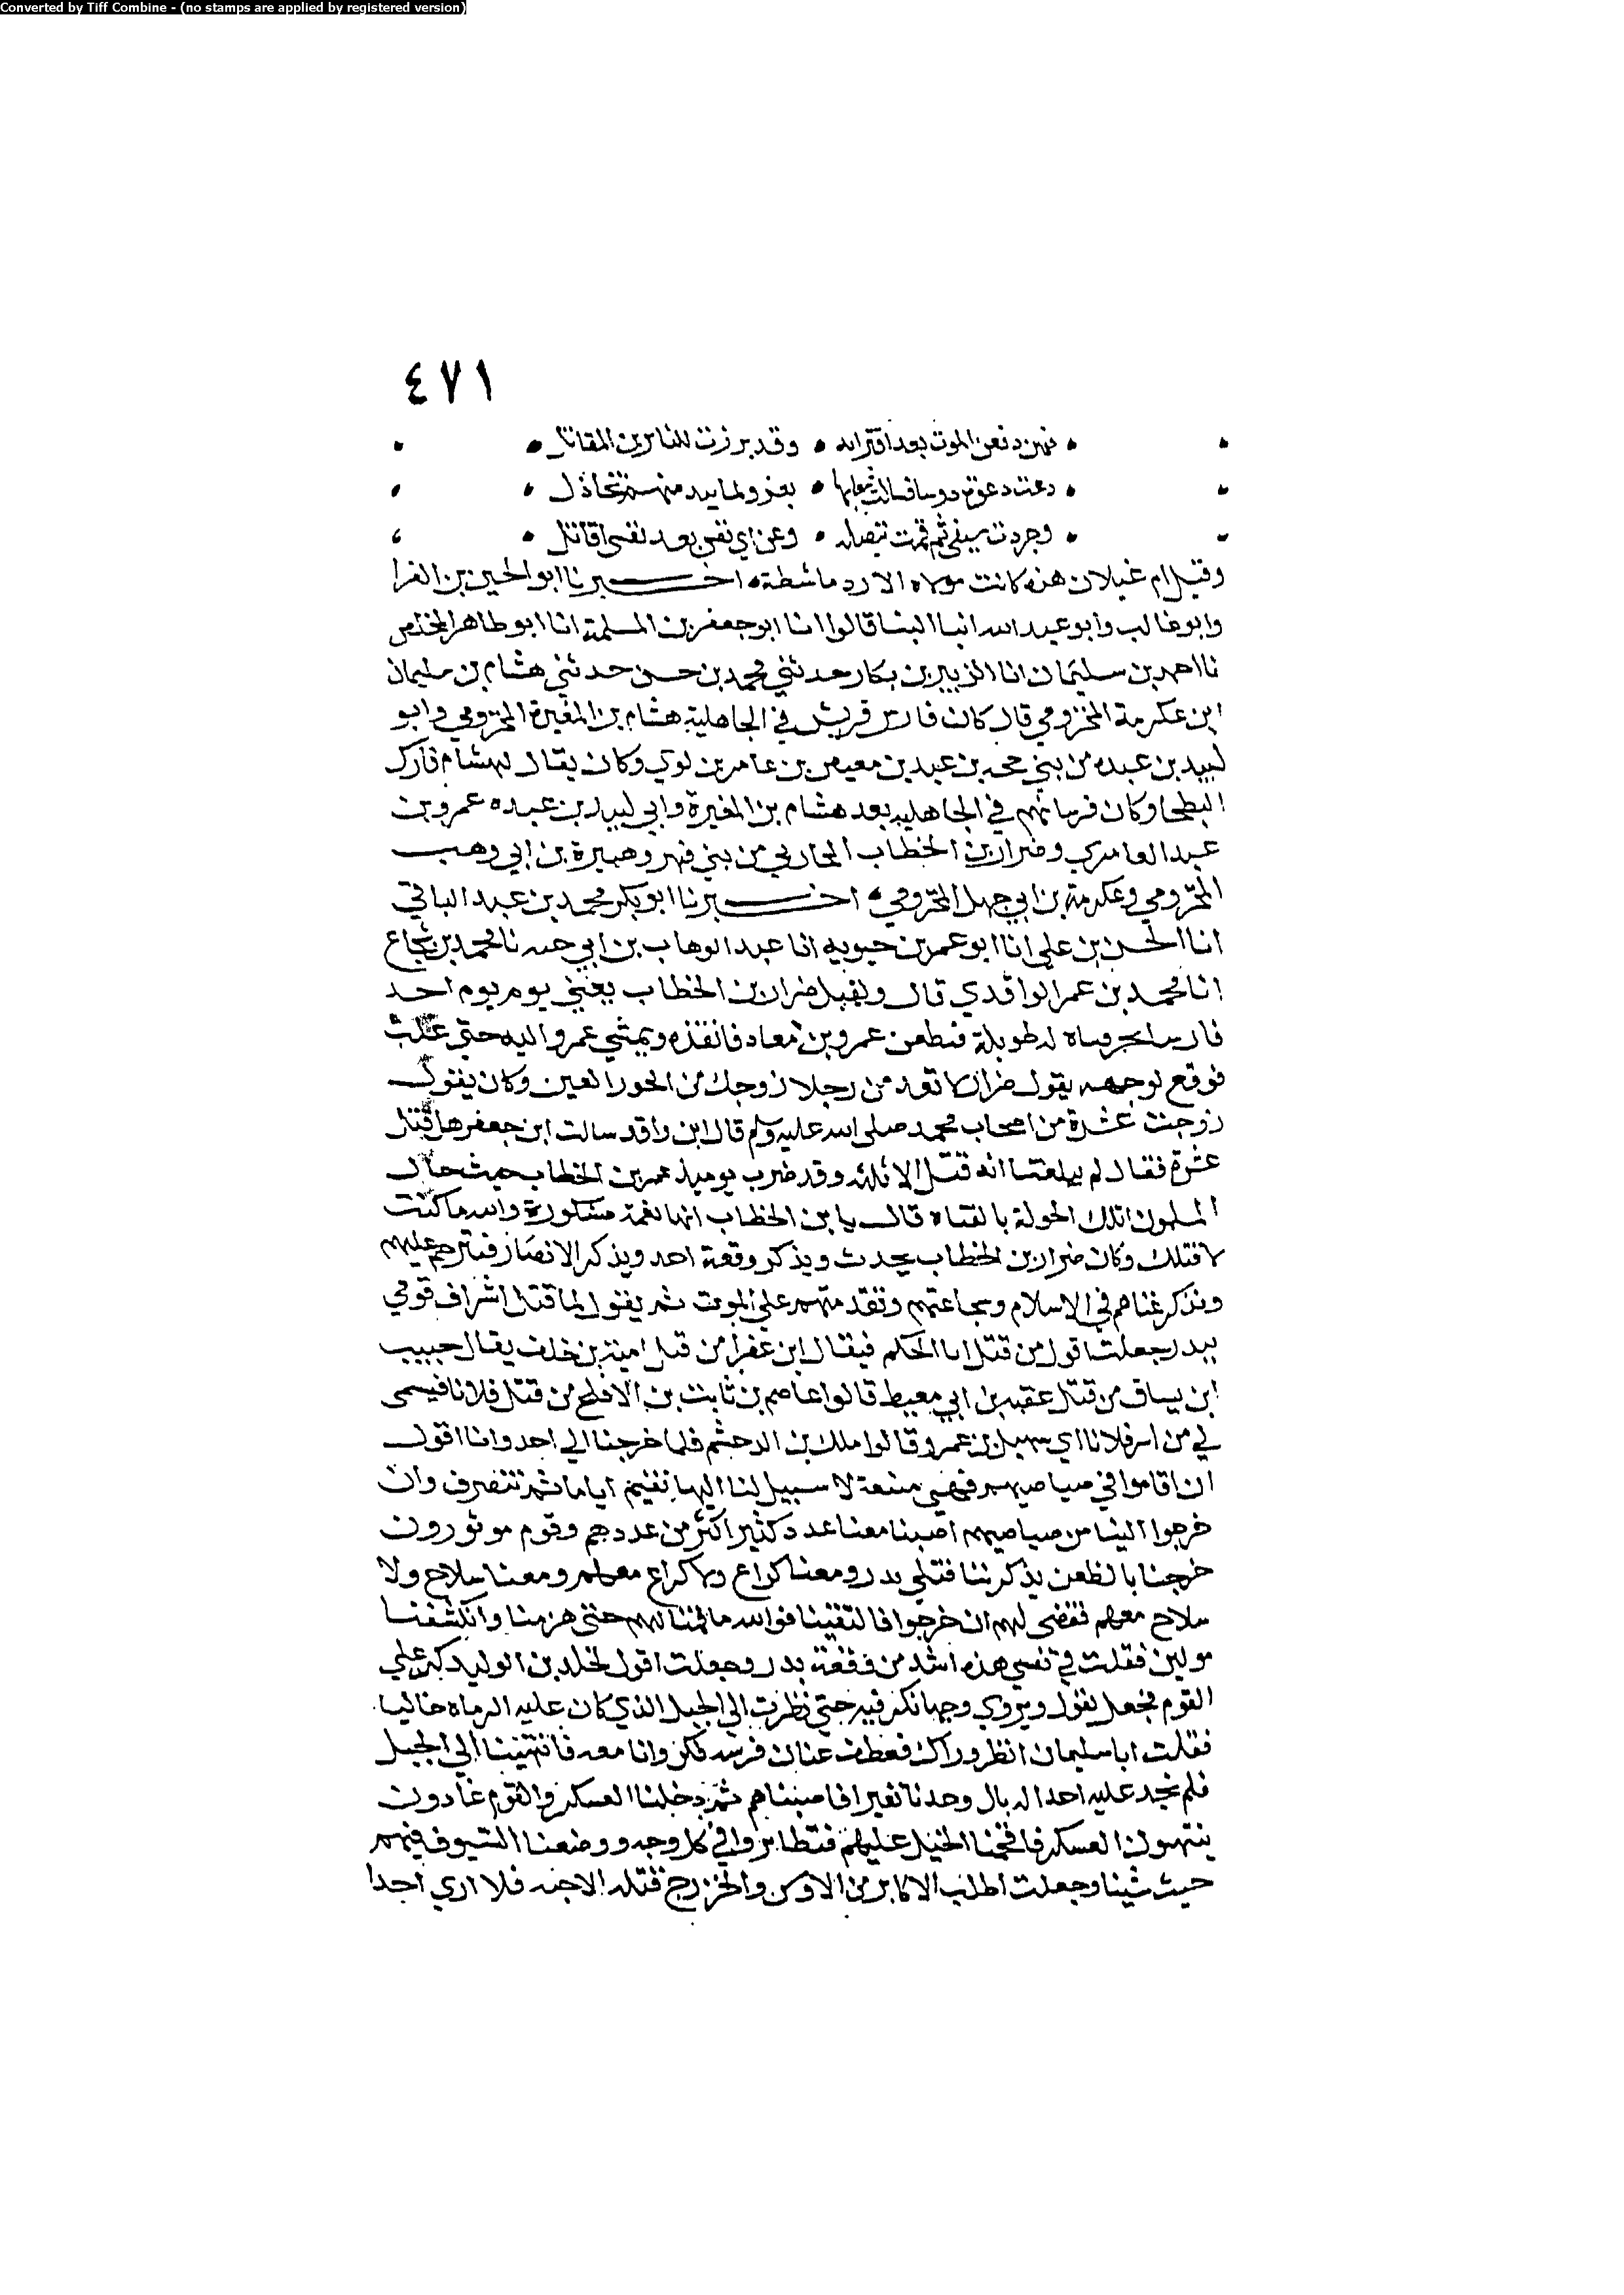 Converted by Tiff Combine - (no stamps are applied by registered version)
٤٧١
فهن دفعن الموت بعد اقترابه • وقد برزت للثائرين المقاتل
دعت دعوة دوسا فسالت شعابها • بعز ولما يبد منهم تخاذل
وجردت سيفي ثم قمت بنصله • وعن اي نفس بعد نفسي اقاتل
وقيل ام غيلان هذه كانت مولاه الازد ماشطة • اخبرنا ابو الحسين بن الفرا
وابو غالب وابو عبد الله انبا البنا قالوا انا ابو جعفر بن المسلمة انا ابو طاهر المخلص
نا احمد بن سليمان انا الزبير بن بكار حدثني محمد بن حسن حدثني هشام بن سليمان
ابن عكرمة المخزومي قال كان فارس قريش في الجاهلية هشام بن المغيرة المخزومي وابو
لبيد بن عبده من بني حجر بن عبد بن معيص بن عامر بن لوي وكان يقال لهشام فارس
البطحا وكان فرسانهم في الجاهليه بعد هشام بن المغيرة وابي لبيد بن عبده عمرو بن
عبد العامري وضرار بن الخطاب المحاربي من بني فهر وهبيرة بن ابي وهب
المخزومي وعكرمة بن ابي جهل المخزومي • اخبرنا ابو بكر محمد بن عبد الباقي
انا الحسن بن علي انا ابو عمر بن حيويه انا عبد الوهاب بن ابي حيه نا محمد بن شجاع
انا محمد بن عمر الواقدي قال ويقبل ضرار بن الخطاب يعني يوم يوم احد
فارسا يجر قناه له طويلة فيطعن عمرو بن معاد فانفذه ويمشي عمرو اليه حتى غلب
فوقع لوجهه يقول ضرار لا تعد من رجلا زوجك من الحور العين وكان يقول
زوجت عشرة من اصحاب محمد صلى الله عليه وسلم قال ابن واقد سالت ابن جعفر هل قتل
عشرة فقال لم يبلغنا انه قتل الا ثلاثه وقد ضرب يوميذ عمر بن الخطاب حيث جال
المسلمون تلك الجولة بالقناه قال يا بن الخطاب انها نعمة مشكورة والله ما كنت
لاقتلك وكان ضرار بن الخطاب يحدث ويذكر وقعة احد ويذكر الانصار فيترحم عليهم
ويذكر غناهم في الاسلام وشجاعتهم وتقدمتهم على الموت ثم يقول لما قتل اشراف قومي
ببدر جعلت اقول من قتل ابا الحكم فيقال ابن عفرا من قتل امية بن خلف يقال حبيب
ابن يساف من قتل عقبه بن ابي معيط قالوا عاصم بن ثابت بن الافلح من قتل فلانا فيسمى
لي من اسر فلانا اي سهيل بن عمرو قالوا ملك بن الدخشم فلما خرجنا الي احد وانا اقول
ان اقاموا في صياصيهم فهي منعة لا سبيل لنا اليها نقيم اياما ثم ننصرف وان
خرجوا الينا من صياصيهم اصبنا معنا عدد كثير اكثر من عددهم وقوم موتورون
خرجنا بالظعن يذكرننا قتلي بدر ومعنا كراع ولا كراع معهم ومعنا سلاح ولا
سلاح معهم فقضى لهم ان خرجوا فالتقينا فوالله ما قمنا لهم حتى هزمنا وانكشفنا
مولين فقلت في نفسي هذه اشد من وقعة بدر وجعلت اقول لخلد بن الوليد كر علي
القوم فجعل يقول ويروي وجها نكر فيه حتى نظرت الي الجبل الذي كان عليه الرماه خاليا
فقلت ابا سليمان انظر وراك فعطف عنان فرسه فكر وانا معه فانتهينا الي الجبل
فلم نجد عليه احدا له بال وجدنا نفيرا فاصبناهم ثم دخلنا العسكر والقوم غادون
ينتهبون العسكر فاقحمنا الخيل عليهم فتطايروا في كل وجه ووضعنا السيوف فيهم
حيث شينا وجعلت اطلب الاكابر من الاوس والخزرج قتله الاحبه فلا اري احدا